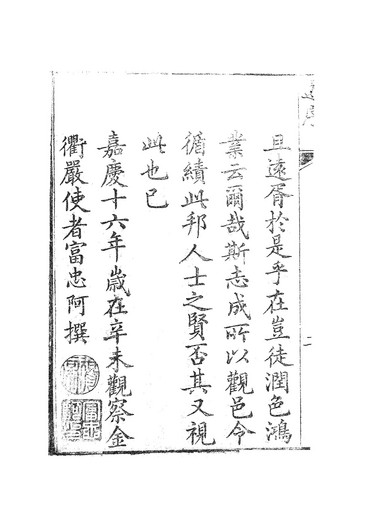 且遠胥於是乎在豈徒潤色鴻
業云爾哉斯志成所以觀邑令
循績此邦人士之賢否其又視
此也已
嘉慶十六年歲在辛未觀察金
衢嚴使者富忠阿撰